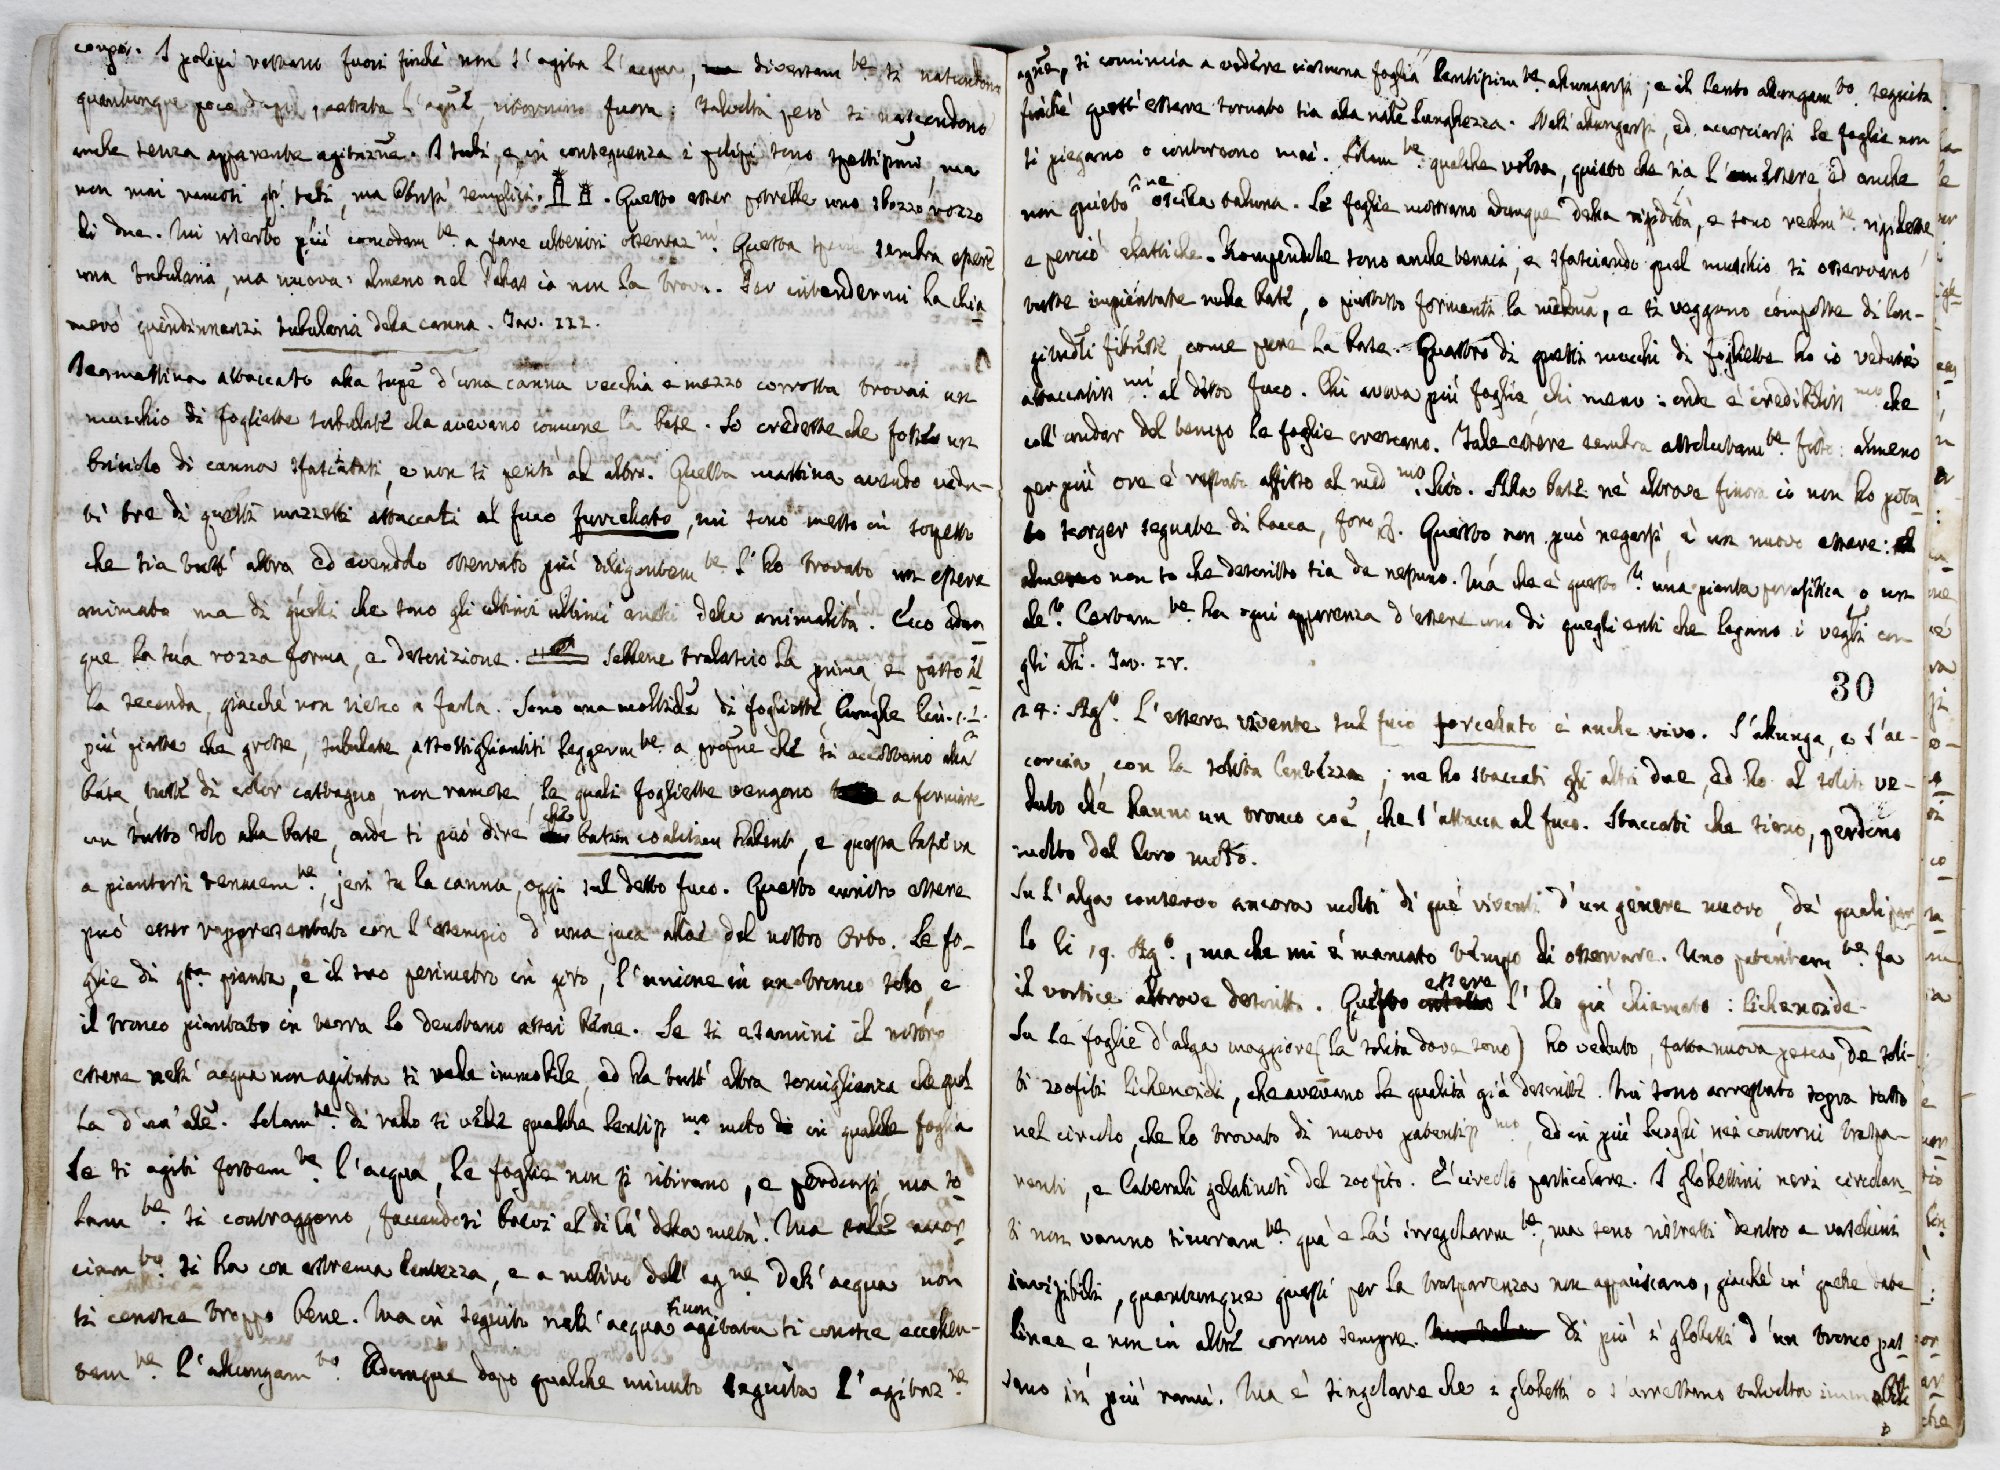 corpo. I polipi restano fuori finchè non s'agita l'acqua, diversam.te si nascondono
quantunque poco dopo, restata l'agit.e ritornino fuora; talvolta però si nascondono
anche senza apparente agitaz.ne. I tubi, e in conseguenza i polipi sono spessissimi, ma
non mai ramosi gli tubi, ma sempre semplici. Questo esser potrebbe uno sbozzo rozzo
di due. Mi riserbo più comodam.te a fare ulteriori osservaz.ni. Questa specie sembra essere
una tubularia, ma nuova: almeno nel Pallas io non la trovo. Per intendermi la chia-
merò quindinnanzi tubularia della canna. Tav. III.
Jermattina attaccato alla supe d'una canna vecchia e mezzo corrotta trovai un
mucchio di fogliette tubulate che avevano comune la base. Io credetti che fosse un
briciolo di canna sfasciatasi, e non si pensi ad altro. Questa mattina avendo vedu-
ti tre di questi mazzetti attaccati al fuco furcellato, mi sono messo in sospetto
che sia tutt'altro ed avendolo osservato più diligentem.te l'ho trovato un essere
animato ma di quelli che sono gli ultimi ultimi anelli della animalità. Ecco adun-
que la sua rozza forma, e descrizione. Sebbene tralascio la prima, e passo al-
la seconda, giacchè non riesco a farla. Sono una moltitud.e di fogliette lunghe lin. 1.½.
più piatte che grosse, tubulate, assottigliantisi leggerm.te a proporz.ne che si accostano alla
base, tutte di color castagno, non ramose, le quali fogliette vengono a formare
un tutto solo alla base, onde si può dire che basim coalitam habent, e questa base va
a piantarsi tenuem.te, jeri su la canna, oggi sul detto fuco. Questo curioso essere
può esser rappresentato con l'esempio d'una juca aloe del nostro Orto. Le fo-
glie di q.ta pianta, e il suo perimetro in giro, l'unione in un tronco solo, e
il tronco piantato in terra lo denotano assai bene. Se si esamini il nostro
essere nell'acqua non agitata si vede immobile, ed ha tutt'altra somiglianza che quel-
la d'un'ale. Solam.te di rado si vede qualche lentiss.mo moto in qualche foglia
Se si agiti fortem.te l'acqua, le foglie non si ritirano, e perdonsi, ma so-
lam.te si contraggono, facendosi brevi al di là della metà. Ma tale accor-
ciam.to si ha con estrema lentezza, e a motivo dell'ag.ne dell'acqua non
si conosce troppo bene. Ma in seguito nell'acqua non agitata si conosce eccellen-
tem.te l'allungam.to. Adunque dopo qualche minuto seguita l'agitaz.ne
ag.ne, si comincia a vedere ciascuna foglia lentissim.te allungarsi; e il lento allungam.to seguita
finchè quest'essere tornato sia alla nat.le lunghezza. Nell'allungarsi, ed accorciarsi le foglie non
si piegano o contorcono mai. Solam.te qualche volta, quieto che sia l'essere ed anche
non quieto, oscilla taluna. Le foglie mostrano adunque della rigidità, e sono realm.te rigidette
e perciò elastiche. Rompendole sono anche tenaci, e sfasciando quel mucchio si osservano
tutte impiantate nella base, o piuttosto formanti la med.ma, e si veggono composte di lon-
gitudli fibrette, come pure la base. Quattro di questi mucchi di fogliette ho io veduti
attaccatiss.mi al ditto fuco. Chi aveva più foglie, chi meno: onde è credibiliss.mo che
coll'andar del tempo le foglie crescano. Tale essere sembra assolutam.te fisso: almeno
per più ore è restato affisso al med.mo sito. Alla base nè altrove finora io non ho potu-
to scorger segnale di bocca, foro &. Questo non può negarsi, è un nuovo essere:
almeno non so che descritto sia da nessuno. Ma che è questo? una pianta parasitica o un
ale? Certam.te ha ogni apparenza d'essere uno di quegli enti che legano i veg.li con
gli al.i. Tav. IV.
30
24: Ag.to L'essere vivente sul fuco forcellato è anche vivo. S'allunga, e s'ac-
corcia, con la solita lentezza; ne ho staccati gli altri due, ed ho al solito ve-
duto che hanno un tronco coe, che s'attacca al fuco. Staccati che sieno, perdono
molto del loro moto.
Su l'alga conservo ancora molti di que' viventi d'un genere nuovo, de' quali par-
lo li 19. Ag.to, ma che mi è mancato tempo di osservare. Uno patentem.te fa
il vortice altrove descritto. Questo essere l'ho già chiamato: lichenoide.
Su le foglie d'alga maggiore (la solita dove sono) ho veduto, fatta nuova pesca, de soli-
ti zoofiti lichenoidi, che avevano le qualità già descritte. Mi sono arrestato sopra tutto
nel circolo, che ho trovato di nuovo patentiss.mo, ed in più luoghi nei contorni traspa-
renti, e laterali gelatinosi del zoofito. È circolo particolare. I globettini neri circolan-
ti non vanno sinceram.te quà e là irregolarm.te, ma sono ristretti dentro a vasellini
invisibili, quantunque questi per la trasparenza non appariscano, giacchè in quelle date
linee e non in altre corrono sempre. Di più i globetti d'un tronco pas-
sano in più rami. Ma è singolare che i globetti o s'arrestano talvolta immobili